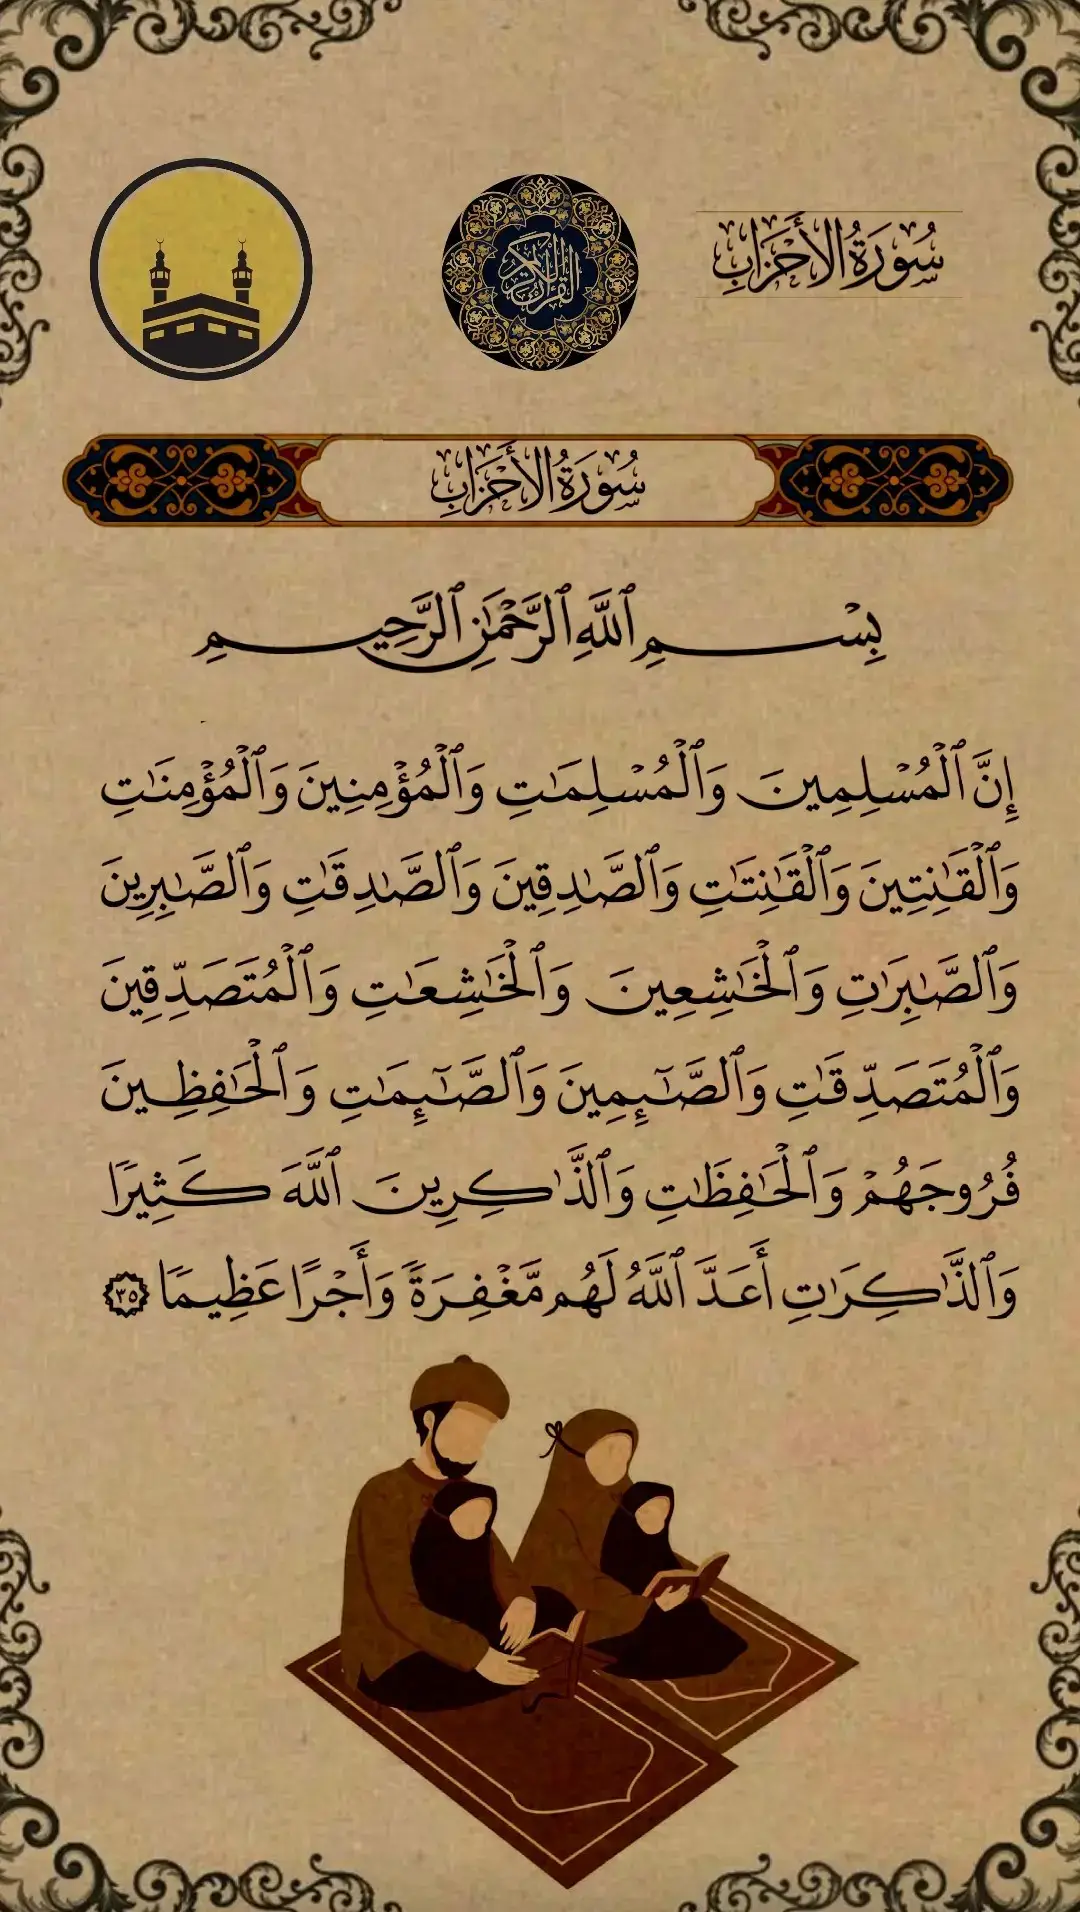 سُورَةُ الأَحْزَابِ
القرآن الكريم
سُورَةُ الأَحْزَابِ
بِسْمِ ٱللَّهِ ٱلرَّحْمَٰنِ ٱلرَّحِيمِ
إِنَّ ٱلْمُسْلِمِينَ وَٱلْمُسْلِمَٰتِ وَٱلْمُؤْمِنِينَ وَٱلْمُؤْمِنَٰتِ
وَٱلْقَٰنِتِينَ وَٱلْقَٰنِتَٰتِ وَٱلصَّٰدِقِينَ وَٱلصَّٰدِقَٰتِ وَٱلصَّٰبِرِينَ
وَٱلصَّٰبِرَٰتِ وَٱلْخَٰشِعِينَ وَٱلْخَٰشِعَٰتِ وَٱلْمُتَصَدِّقِينَ
وَٱلْمُتَصَدِّقَٰتِ وَٱلصَّٰٓئِمِينَ وَٱلصَّٰٓئِمَٰتِ وَٱلْحَٰفِظِينَ
فُرُوجَهُمْ وَٱلْحَٰفِظَٰتِ وَٱلذَّٰكِرِينَ ٱللَّهَ كَثِيرًا
وَٱلذَّٰكِرَٰتِ أَعَدَّ ٱللَّهُ لَهُم مَّغْفِرَةً وَأَجْرًا عَظِيمًا ٣٥